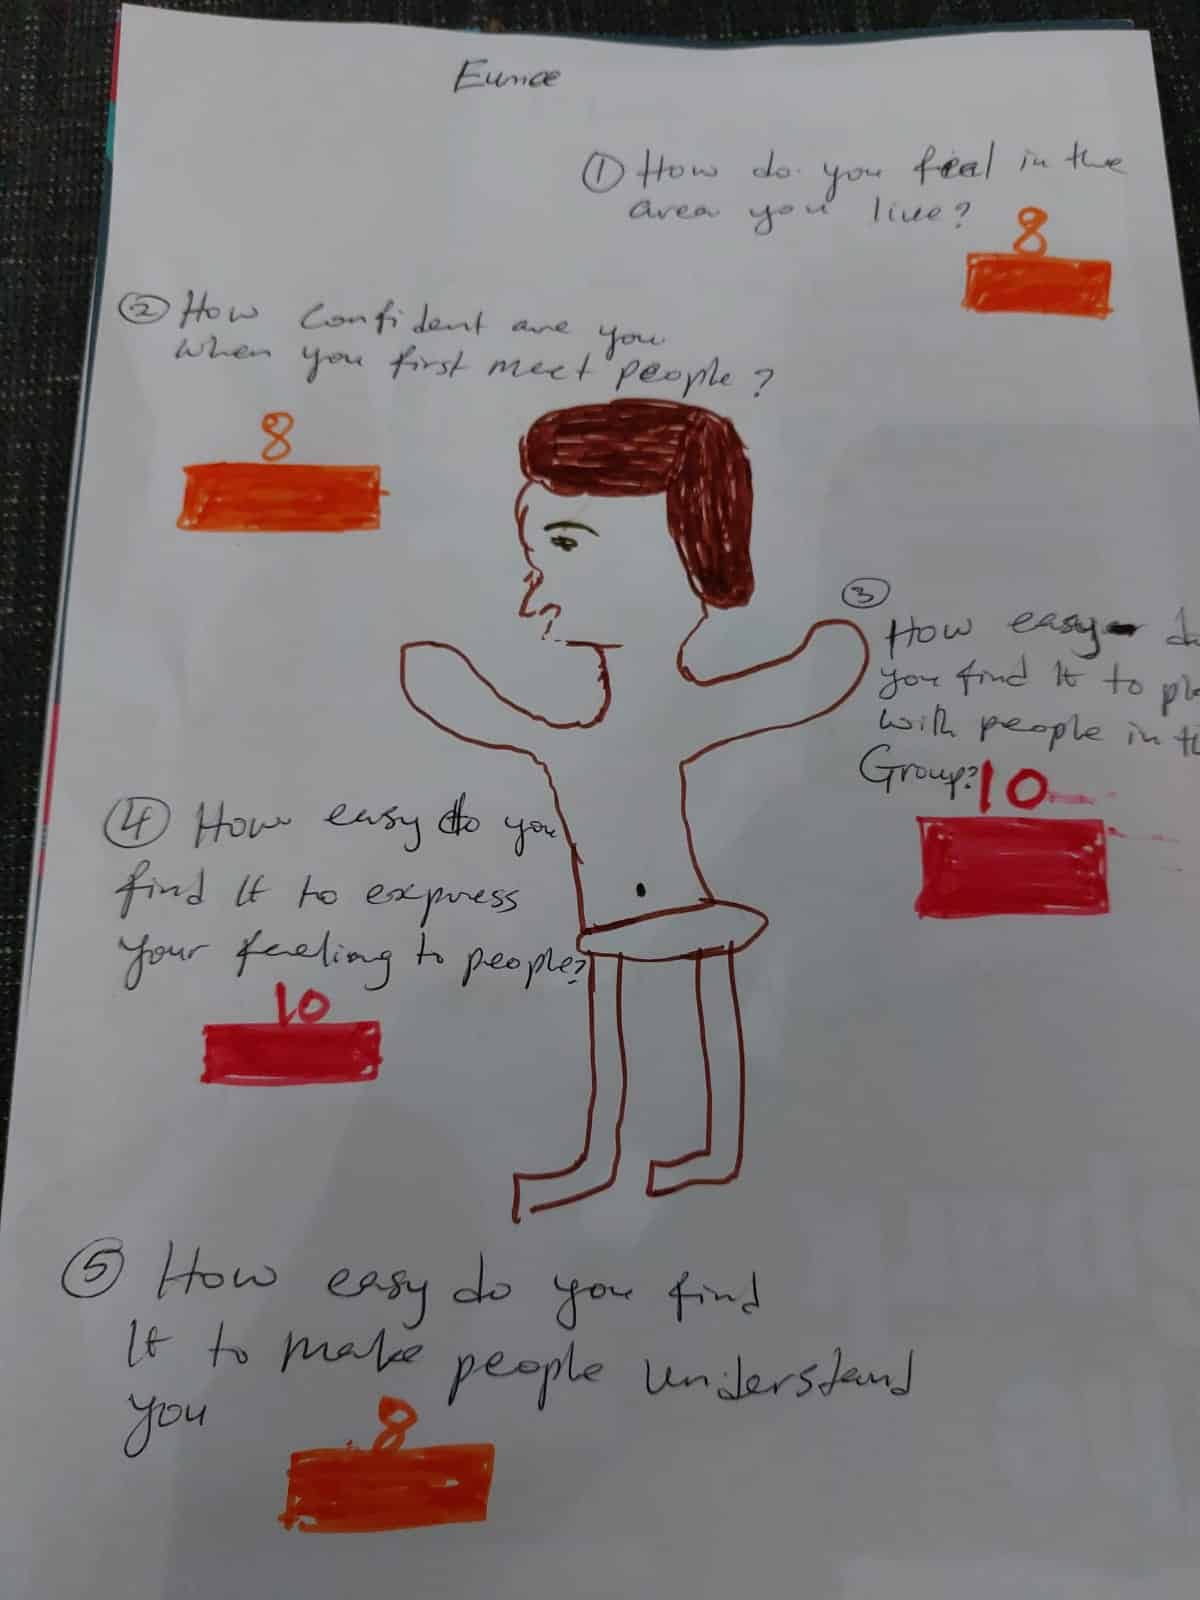 Eunice
① How do you feel in the
area you live?
8
② How confident are you
when you first meet people?
8
③
How easy do
you find It to pla
with people in th
Group?
10
④ How easy do you
find It to express
your feeling to people?
10
⑤ How easy do you find
It to make people understand
you
8